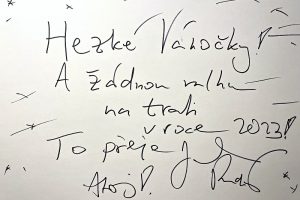 Hezké Vánočky!
A žádnou
na trati
v roce 2023!
To přeje
Ahoj!